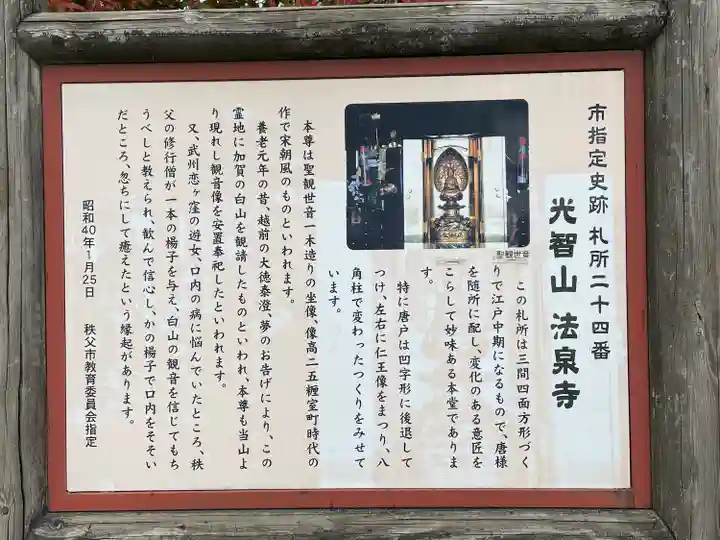 市指定史跡 札所二十四番
光智山 法泉寺
この札所は三間四面方形づく
りで江戸中期になるもので、唐様
を随所に配し、変化のある意匠を
こらして妙味ある本堂でありま
す。
特に唐戸は凹字形に後退して
つけ、左右に仁王像をまつり、八
角柱で変わったつくりをみせて
います。
聖観世音
本尊は聖観世音一木造りの坐像、像高二五糎室町時代の
作で宋朝風のものといわれます。
養老元年の昔、越前の大徳泰澄、夢のお告げにより、この
霊地に加賀の白山を観請したものといわれ、本尊も当山よ
り現れし観音像を安置奉祀したといわれます。
又、武州恋ヶ窪の遊女、口内の病に悩んでいたところ、秩
父の修行僧が一本の楊子を与え、白山の観音を信じてもち
うべしと教えられ、歓んで信心し、かの楊子で口内をそそい
だところ、忽ちにして癒えたという縁起があります。
昭和40年1月25日 秩父市教育委員会指定